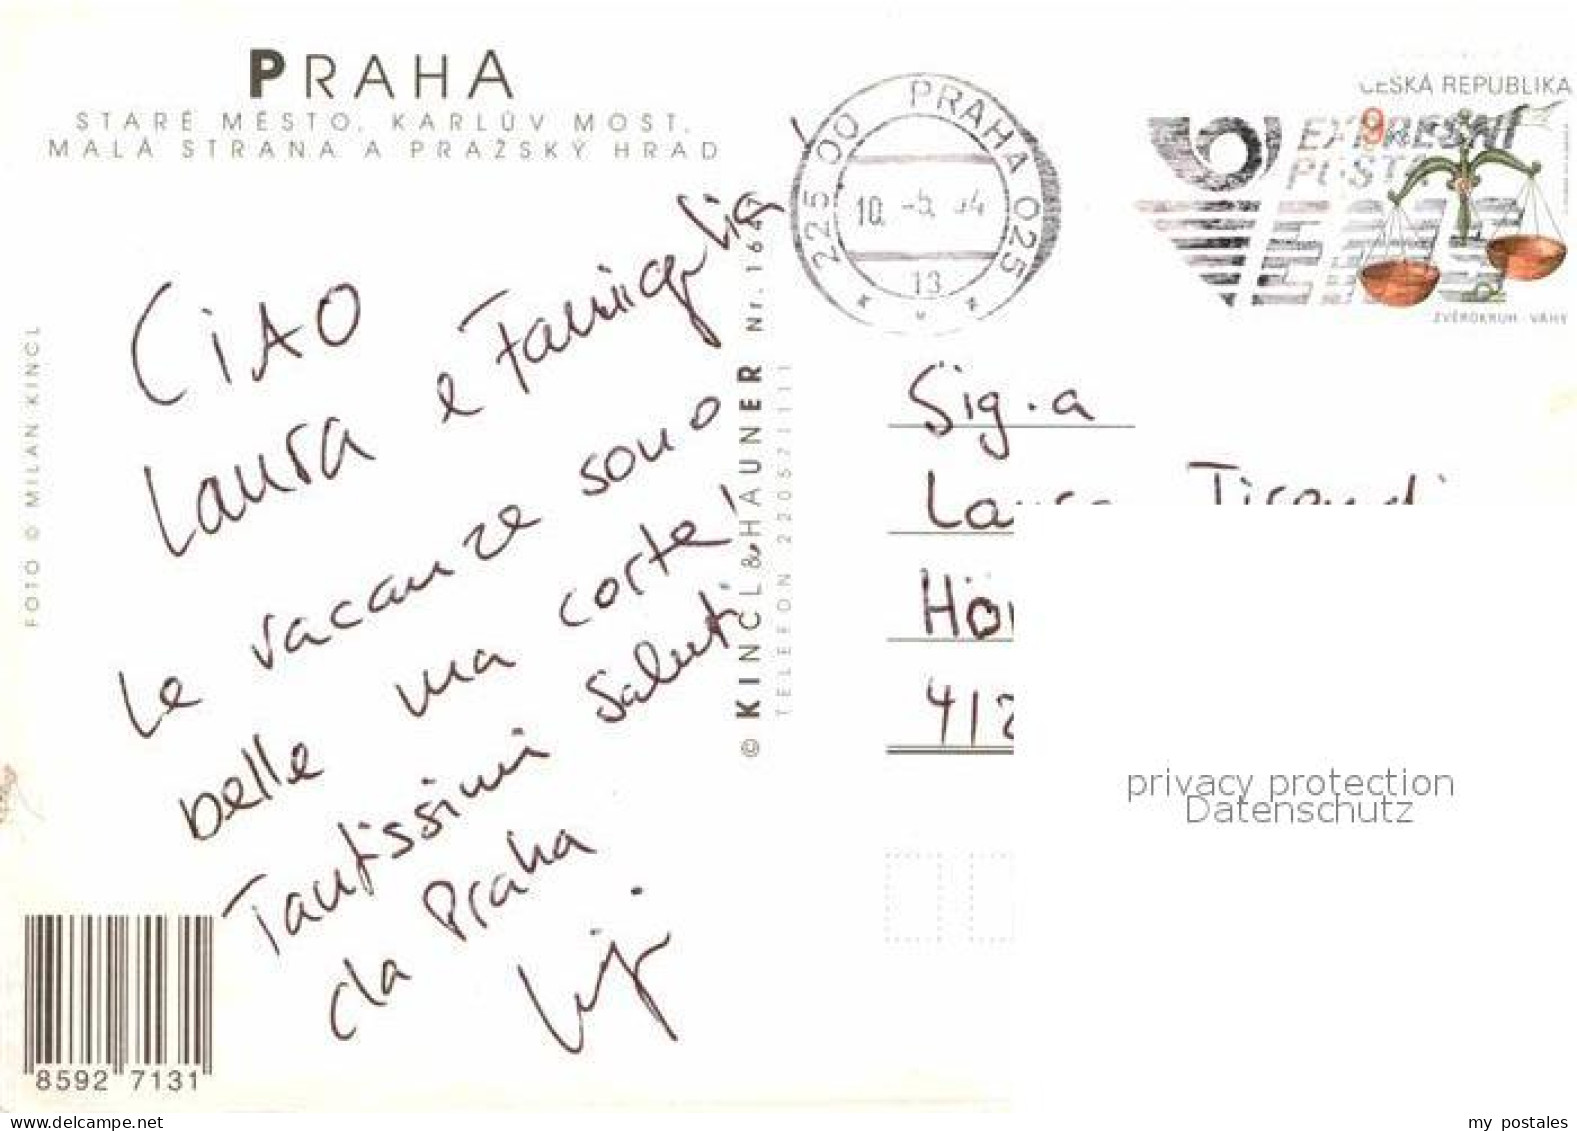 PRAHA
STARÉ MĚSTO, KARLŮV MOST,
MALÁ STRANA A PRAŽSKÝ HRAD
FOTO © MILAN KINCL
CIAO
Laura e Famiglia!
Le vacanze sono
belle ma corte!
Tantissimi Saluti
da Praha
© KINCL & HAUNER Nr. 164
TELEFON 220571111
8592 7131
225 00 PRAHA 025
10. -5. 04
13
ČESKÁ REPUBLIKA
9
EXPRESNÍ
EMS
ZVĚROKRUH - VÁHY
Sig.a
Laura
412
privacy protection
Datenschutz
my postales